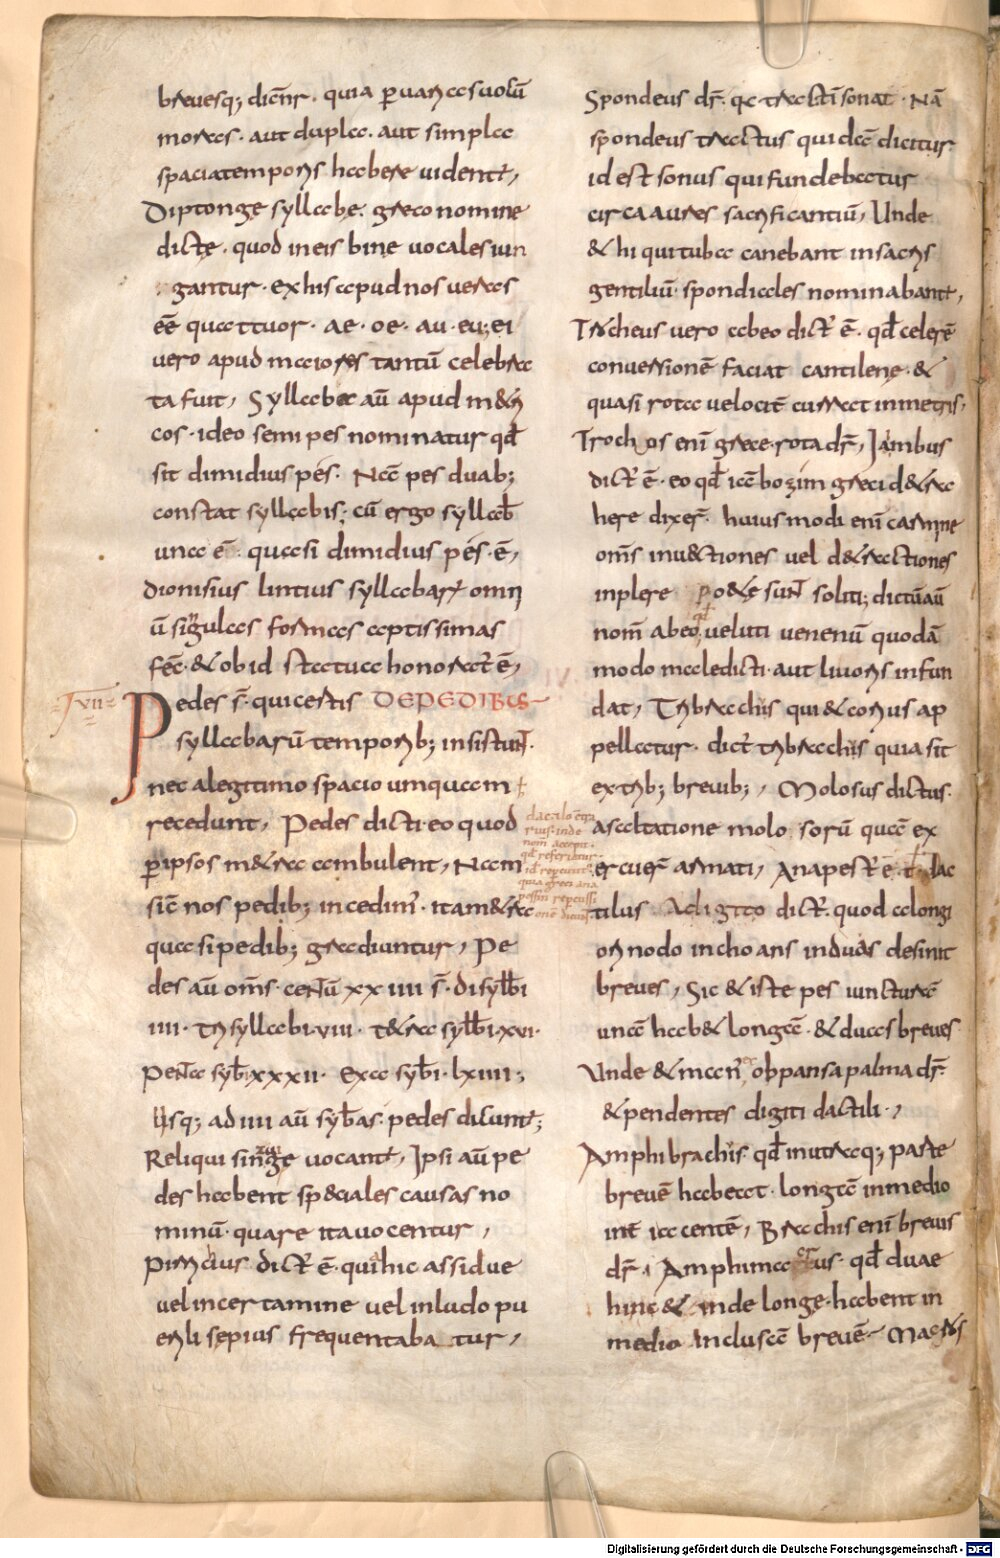 breuesq; dicūr. quia p uarias uolū
moras. aut dupla. aut simpla
spacia temporis habere uident,
Diptonge syllabe. greco nomine
dicte. quod in eis bine uocales iun
gantur. ex his apud nos ueras
ēē quattuor. ae. oe. au. eu; ei
uero apud maiores tantū celebra
ta fuit, Syllaba aū apud m&ri
cos. ideo semipes nominatur qđ
sit dimidius pes. Nā pes duab;
constat syllabis; cū ergo syllab̄
una ē. quasi dimidius pes. ē,
Dionisius lintius syllabarꝝ omni
ū sigulas formas aptissimas
fec̄. & ob id statua honorat̄ ē,
VII
Pedes s̄. qui certis DE PEDIBUS
syllabarū temporib; insistunt.
nec a legitimo spacio umquam
recedunt, Pedes dicti eo quod
p ipsos m&ra ambulent, Nam
sic̄ nos pedib; incedim̄. ita m&ra
quasi pedib; gradiuntur, Pe
des aū om̄s. centū xxiiii s̄. disyllbi
iiii. trisyllabi. viii. t&ra syllbi. xvi.
Penta sylb̄i. xxxii. Exa sylb̄i. lxiiii;
Usq; ad iiii aū sylbas. pedes dicunt;
Reliqui sinzige uocant, Ipsi aū pe
des habent sp&iales causas no
minū. quare ita uocentur,
Piricius dict̄ ē. qui hic assidue
uel in certamine uel in ludo pu
erili sepius frequentaba tur,
dactilo equi
rius. inde
nom̄ accepit
qđ referiatur
id repercuti
quia greci ana
pessin repercussi
onē dicunt
Spondeus dr̄. qa tractī sonat. Nā
spondeus tractus quidā dicitur
id est sonus qui fundebatur
circa aures sacrificantiū, Unde
& hi qui tuba canebant in sacris
gentiliū. spondiales nominabant,
Trocheus uero abeo dict̄ ē. qđ celerē
conuersionē faciat cantilene. &
quasi rota uelocit̄ currat in metris,
Trochos enī grece. rota dr̄, Jambus
dict̄ ē. eo qđ iambozin greci d&ra
here dixer̄. huiusmodi enī carmine
om̄s inu&ctiones uel d&ractiones
inplere po&e sunt soliti; dictū aū
nom̄ abeo, qđ ueluti uenenū quodā
modo maledicti. aut liuoris infun
dat, Tribrachis qui & corius ap
pellatur. dict̄ tribrachis quia sit
ex trib; breuib;, Molosus dictus
a saltatione molosorū quā ex
ercuer̄ armati, Anapest̄ ē. dac
tilus. A digito dict̄. quod a longi
ori modo inchoans in duas desinit
breues, Sic & iste pes iuncturā
unā hab& longā. & duas breues
Unde & man̄ obpansa palma dr̄.
& pendentes digiti dactili.,
Amphibrachis. qđ in utraq; parte
breuē habeat. longā in medio
int̄ iacentē, Brachis enī breuis
dr̄. Amphimacrus. qđ duae
hinc & inde longe. habent in
medio inclusā breuē. Macros
Digitalisierung gefördert durch die Deutsche Forschungsgemeinschaft - DFG